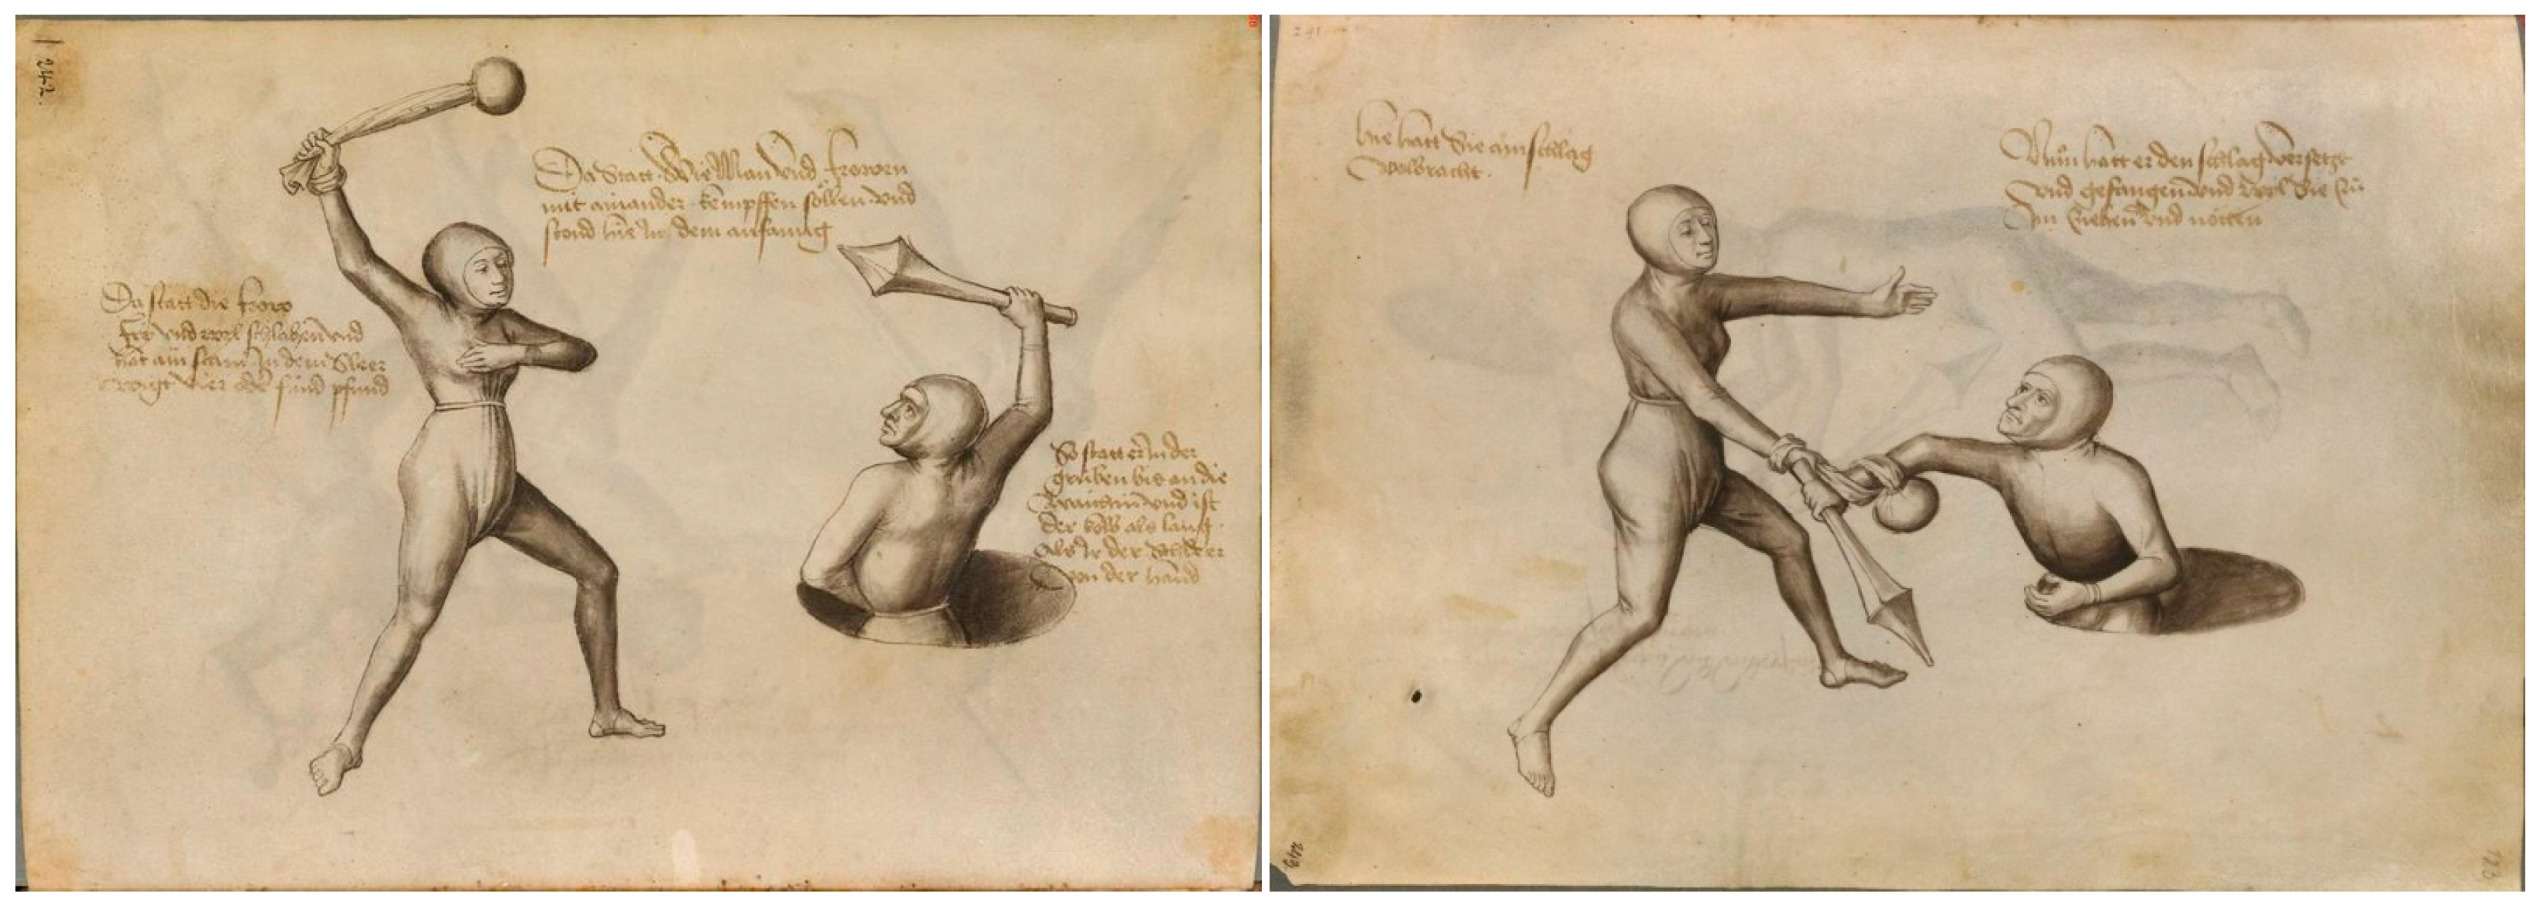 242.
Da Statt Wie Man vnd frowen
mit ainander kempffen söllen vnd
stond hie In dem anfanng
Da statt die frow
frÿ vnd wyl schlahen vnd
hät ain stain In dem Sleer
wigt vier oder fünd pfund
So statt er In der
gruben bis an die
Waichin vnd ist
der kolb als lang
Als Ir der Schleer
von der hannd
241
hie hatt Sie ain schlag
volbracht.
Nun hatt er den schlag versetzt
vnd gefangen vnd wyl Sie zü
Im ziehen vnd nötten
243
123